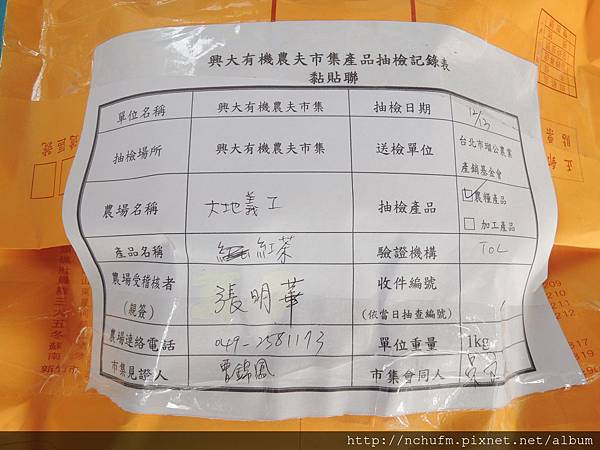 興大有機農夫市集產品抽檢記錄表
黏貼聯
單位名稱 興大有機農夫市集 抽檢日期 12/13
抽檢場所 興大有機農夫市集 送檢單位 台北市瑠公農業
產銷基金會
農場名稱 大地義工 抽檢產品 農糧產品
加工產品
產品名稱 紅茶 驗證機構 TOC
農場受稽核者 張明華 收件編號
(親簽) (依當日抽查編號)
農場連絡電話 049-2581173 單位重量 1kg
市集見證人 曾錦鳳 市集會同人
209
210
212
317
319
http://nchufm.pixnet.net/album